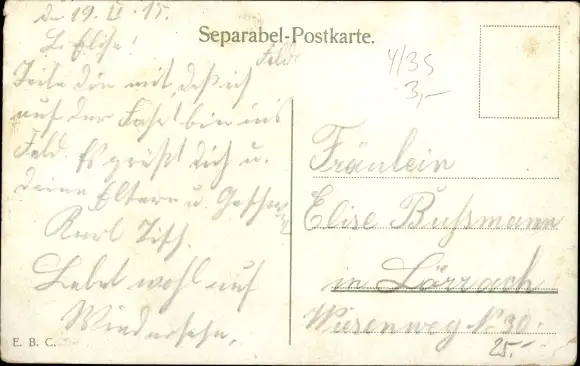 d. 19. II. 15.
L. Elise!
Teile dir mit, daß ich
auf der Fahrt bin ins
Feld. Es grüßt Dich u.
deine Eltern u. Geschw.
Karl
Lebet wohl auf
Wiedersehn.
E. B. C.
Separabel-Postkarte.
Feld
4/35
3,-
Fräulein
Elise Bußmann
in Lörrach
Wiesenweg No 30.
25.-